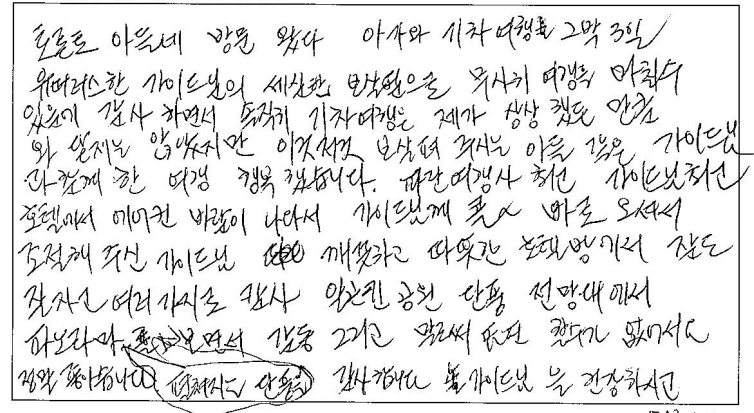 토론토 아들네 방문 왔다 아가와 기차여행 2박 3일
유머러스한 가이드님의 세심한 보살핌으로 무사히 여행을 마칠수
있음에 감사 하면서 솔직히 기차여행은 제가 상상 했던 만큼
와 닿지는 않았지만 이것저것 보살펴 주시는 아들 같은 가이드님
과 함께 한 여행 행복 했습니다. 파란여행사 최고 가이드님 최고
호텔에서 에어컨 바람이 나와서 가이드님께 콜 바로 오셔서
조절해 주신 가이드님 깨끗하고 따뜻한 호텔방에서 잠도
잘자고 여러가지로 감사 알곤퀸 공원 단풍 전망대에서
파노라마 보면서 감동 그리고 말로써 표현 할수가 없어서요
정말 좋아습니다 펼쳐지는 단풍을 감사합니다 가이드님 늘 건강하시고